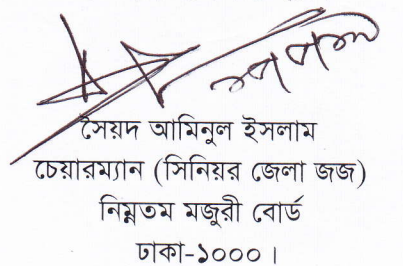 সৈয়দ আমিনুল ইসলাম
চেয়ারম্যান (সিনিয়র জেলা জজ)
নিম্নতম মজুরী বোর্ড
ঢাকা-১০০০।